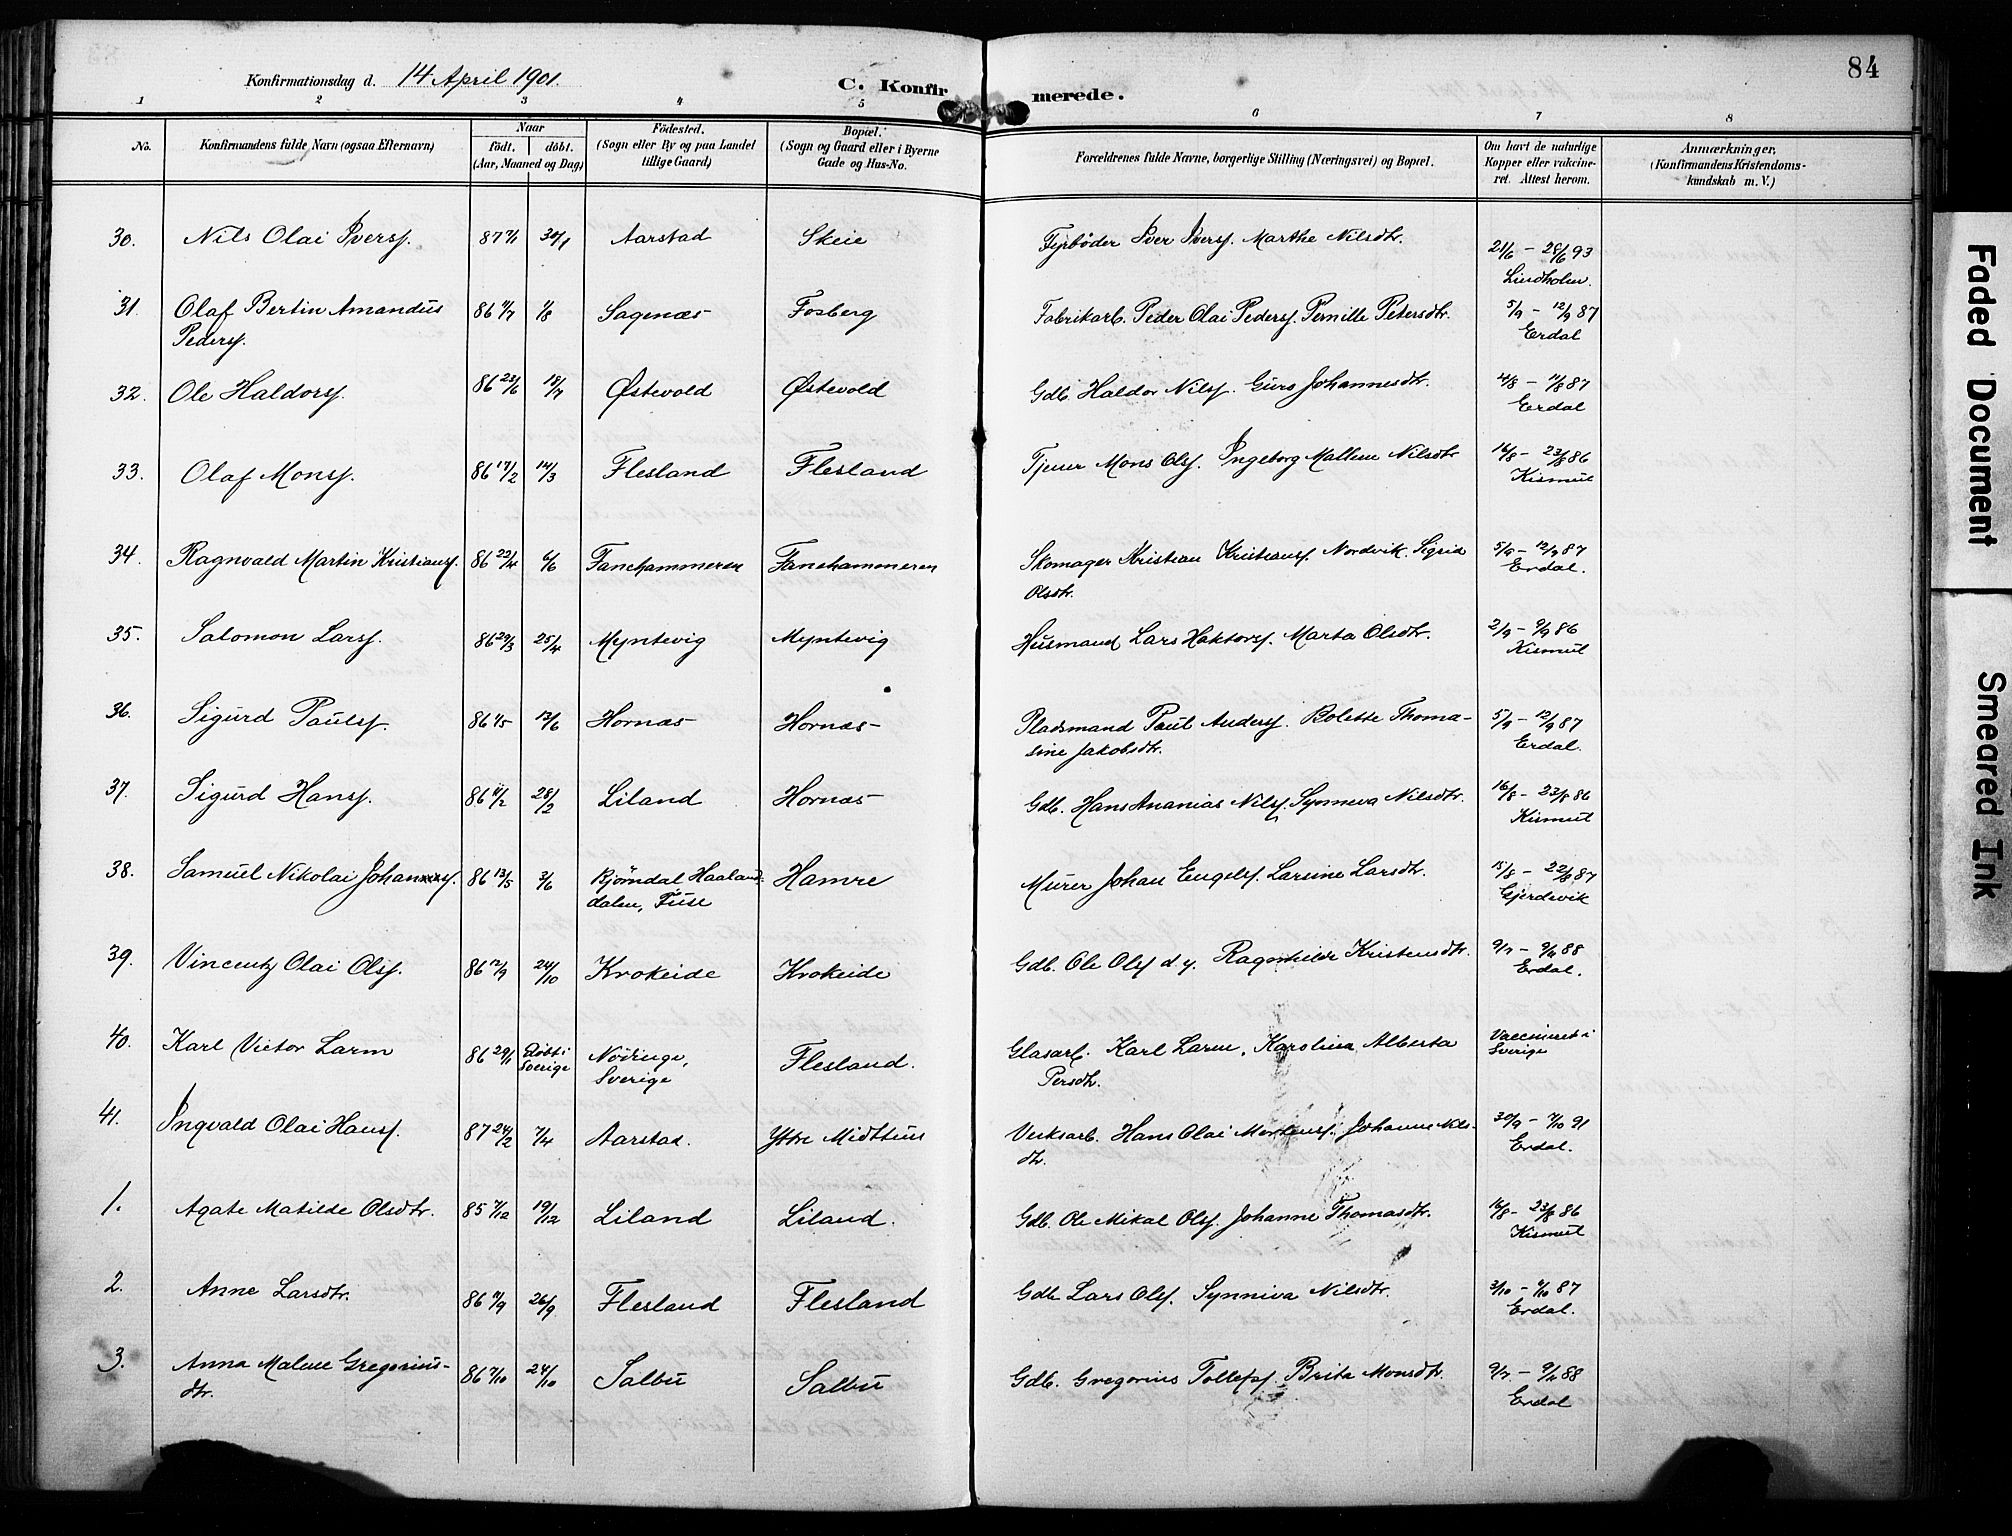 84
Konfirmationsdag d. 14 April 1901.
C. Konfirmerede.
1 2 3 4 5 6 7 8
No. Konfirmandens fulde Navn (ogsaa Efternavn) Naar født. døbt. (Aar, Maaned og Dag) Fødested. (Sogn eller By og paa Landet tillige Gaard) Bopæl. (Sogn og Gaard eller i Byerne Gade og Hus-No. Forældrenes fulde Navne, borgerlige Stilling (Næringsvei) og Bopæl. Om havt de naturlige Kopper eller vakcineret. Attest herom. Anmærkninger, (Konfirmandens Kristendomskundskab m. V.)
30. Nils Olai Iversf. 87 30/1 Aarstad Skeie Fyrbøder Iver Iversf. Marthe Nilsdtr. 21/6 – 28/6 93
Lindholm.
31. Olaf Bertin Amandus 86 1/8 Sagenæs Fosberg Fabrikarb. Peder Olai Pedersf. Pernille Petersdtr. 5/9 – 12/9 87
Pedersf. Erdal
32. Ole Haldorsf. 86 23/6 18/7 Østevold Østevold Gdb. Haldor Nilsf. Guro Johannesdtr. 87
Erdal
33. Olaf Monsf. 86 17/2 14/3 Flesland Flesland Tjener Mons Olsf. Ingeborg Malene Nilsdtr 16/8 – 23/8 86
Kismul
34. Ragnvald Martin Kristiansf. 86 22/4 6/6 Fanehammeren Fanehammeren Skomager Kristian Kristiansf. Nordvik. Sigrid 5/9 – 12/9 87
Olsdtr. Erdal.
35. Salomon Larsf. 86 29/3 25/4 Myntevig Myntevig Husmand Lars Haktorsf. Marta Olsdtr. 2/9 – 9/9 86
Kismul
36. Sigurd Paulsf. 86 1/5 13/6 Hornæs Hornæs Pladsmand Paul Andersf. Bolette Thoma- 5/9 – 12/9 87
sine Jakobsdtr. Erdal.
37. Sigurd Hansf. 86 11/2 28/2 Liland Hornæs Gdb. Hans Ananias Nilsf. Synneva Nilsdtr. 16/8 – 23/8 86
Kismul
38. Samuel Nikolai Johansf. 86 13/5 3/6 Bjørndal Haaland- Hamre Murer Johan Engelsf. Larsine Larsdtr. 15/8 – 22/8 87
dalen, Fuse Gjerdevik
39. Vincentz Olai Olsf. 86 12/9 24/10 Krokeide Krokeide Gdb. Ole Olsf d. y. Ragnhilde Kristensdtr. 88
Erdal.
40. Karl Victor Larm 86 29/1 Døbt i Nödinge, Flesland. Glasarb. Karl Larm, Karolina Alberta Vaccineret i
Sverige Sverige Persdtr. Sverige
41. Ingvald Olai Hansf. 87 24/2 7/4 Aarstad. Ytre Midttun Verksarb. Hans Olai Mortensf. Johanne Nils- 30/9 – 7/10 91
dtr. Erdal.
1. Agate Matilde Olsdtr. 85 7/12 19/12 Liland Liland. Gdb. Ole Mikal Olsf. Johanne Thomasdtr. 16/8 – 23/8 86
Kismul
2. Anne Larsdtr. 86 11/9 26/9 Flesland Flesland Gdb Lars Olsf. Synniva Nilsdtr. 87
Erdal.
3. Anna Malene Gregorius- 86 7/10 24/10 Salbu Salbu Gdb. Gregorius Tollefsf. Brita Monsdtr. 88
dtr. Erdal
Faded Document
Smeared Ink